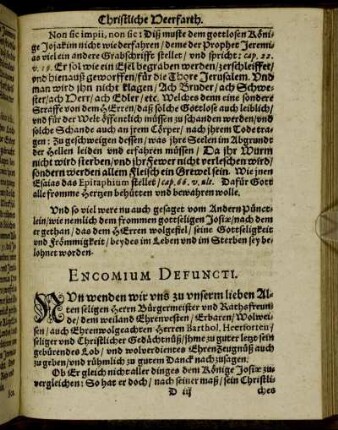 Christliche Heerfarth.
Non sic impii, non sic: Diß muste dem gottlosen Köni-
ge Jojakin nicht wiederfahren / deme der Prophet Jeremi-
as viel ein andere Grabschrifft stellet / und spricht: cap. 22.
v. 19. Er sol wie ein Esel begraben werden / zerschleiffet /
und hienauß geworffen / für die Thore Jerusalem. Und
man wird ihn nicht klagen / Ach Bruder / ach Schwe-
ster / ach Herr / ach Edler / etc. Welches denn eine sondere
Straffe von dem HErren / daß solche Gottlose auch leiblich /
und für der Welt öffentlich müssen zu schanden werden / und
solche Schande auch an jrem Cörper / nach jhrem Tode tra-
gen: Zu geschweigen dessen / was jhre Seelen im Abgrundt
der Hellen leiden und erfahren müssen / Da ihr Wurm
nicht wird sterben / und jhr Fewer nicht verleschen wird /
sondern werden allem Fleisch ein Grewel sein. Wie jnen
Esaias das Epitaphium stellet / cap. 66. v. ult. Dafür Gott
alle fromme Hertzen behütten und bewahren wolle.
Und so viel were nu auch gesaget vom Andern Pünct-
lein / wie nemlich dem frommen gottseligen Josiæ / nach dem
er gethan / das dem HErren wolgefiel / seine Gottseligkeit
und Frömmigkeit / beydes im Leben und im Sterben sey be-
lohnet worden.
ENCOMIUM DEFUNCTI.
NUn wenden wir uns zu unserm lieben Al-
ten seligen Herrn Bürgermeister und Rathsfreun-
de / dem weiland Ehrenvesten / Erbaren / Wolwei-
sen / auch Ehrenwolgeachten Herrn Barthol. Heerforten /
seliger und Christlicher Gedächtnüß / jhme zu guter letze sein
gebürendes Lob / und wolverdientes Ehren Zeugnüß auch
zu geben / und rühmlich zu gutem Danck nachzusagen.
Ob Er gleich nicht aller dinges dem Könige Josiæ zu-
vergleichen: So hat er doch / nach seiner maß / sein Christli-
D iij
ches